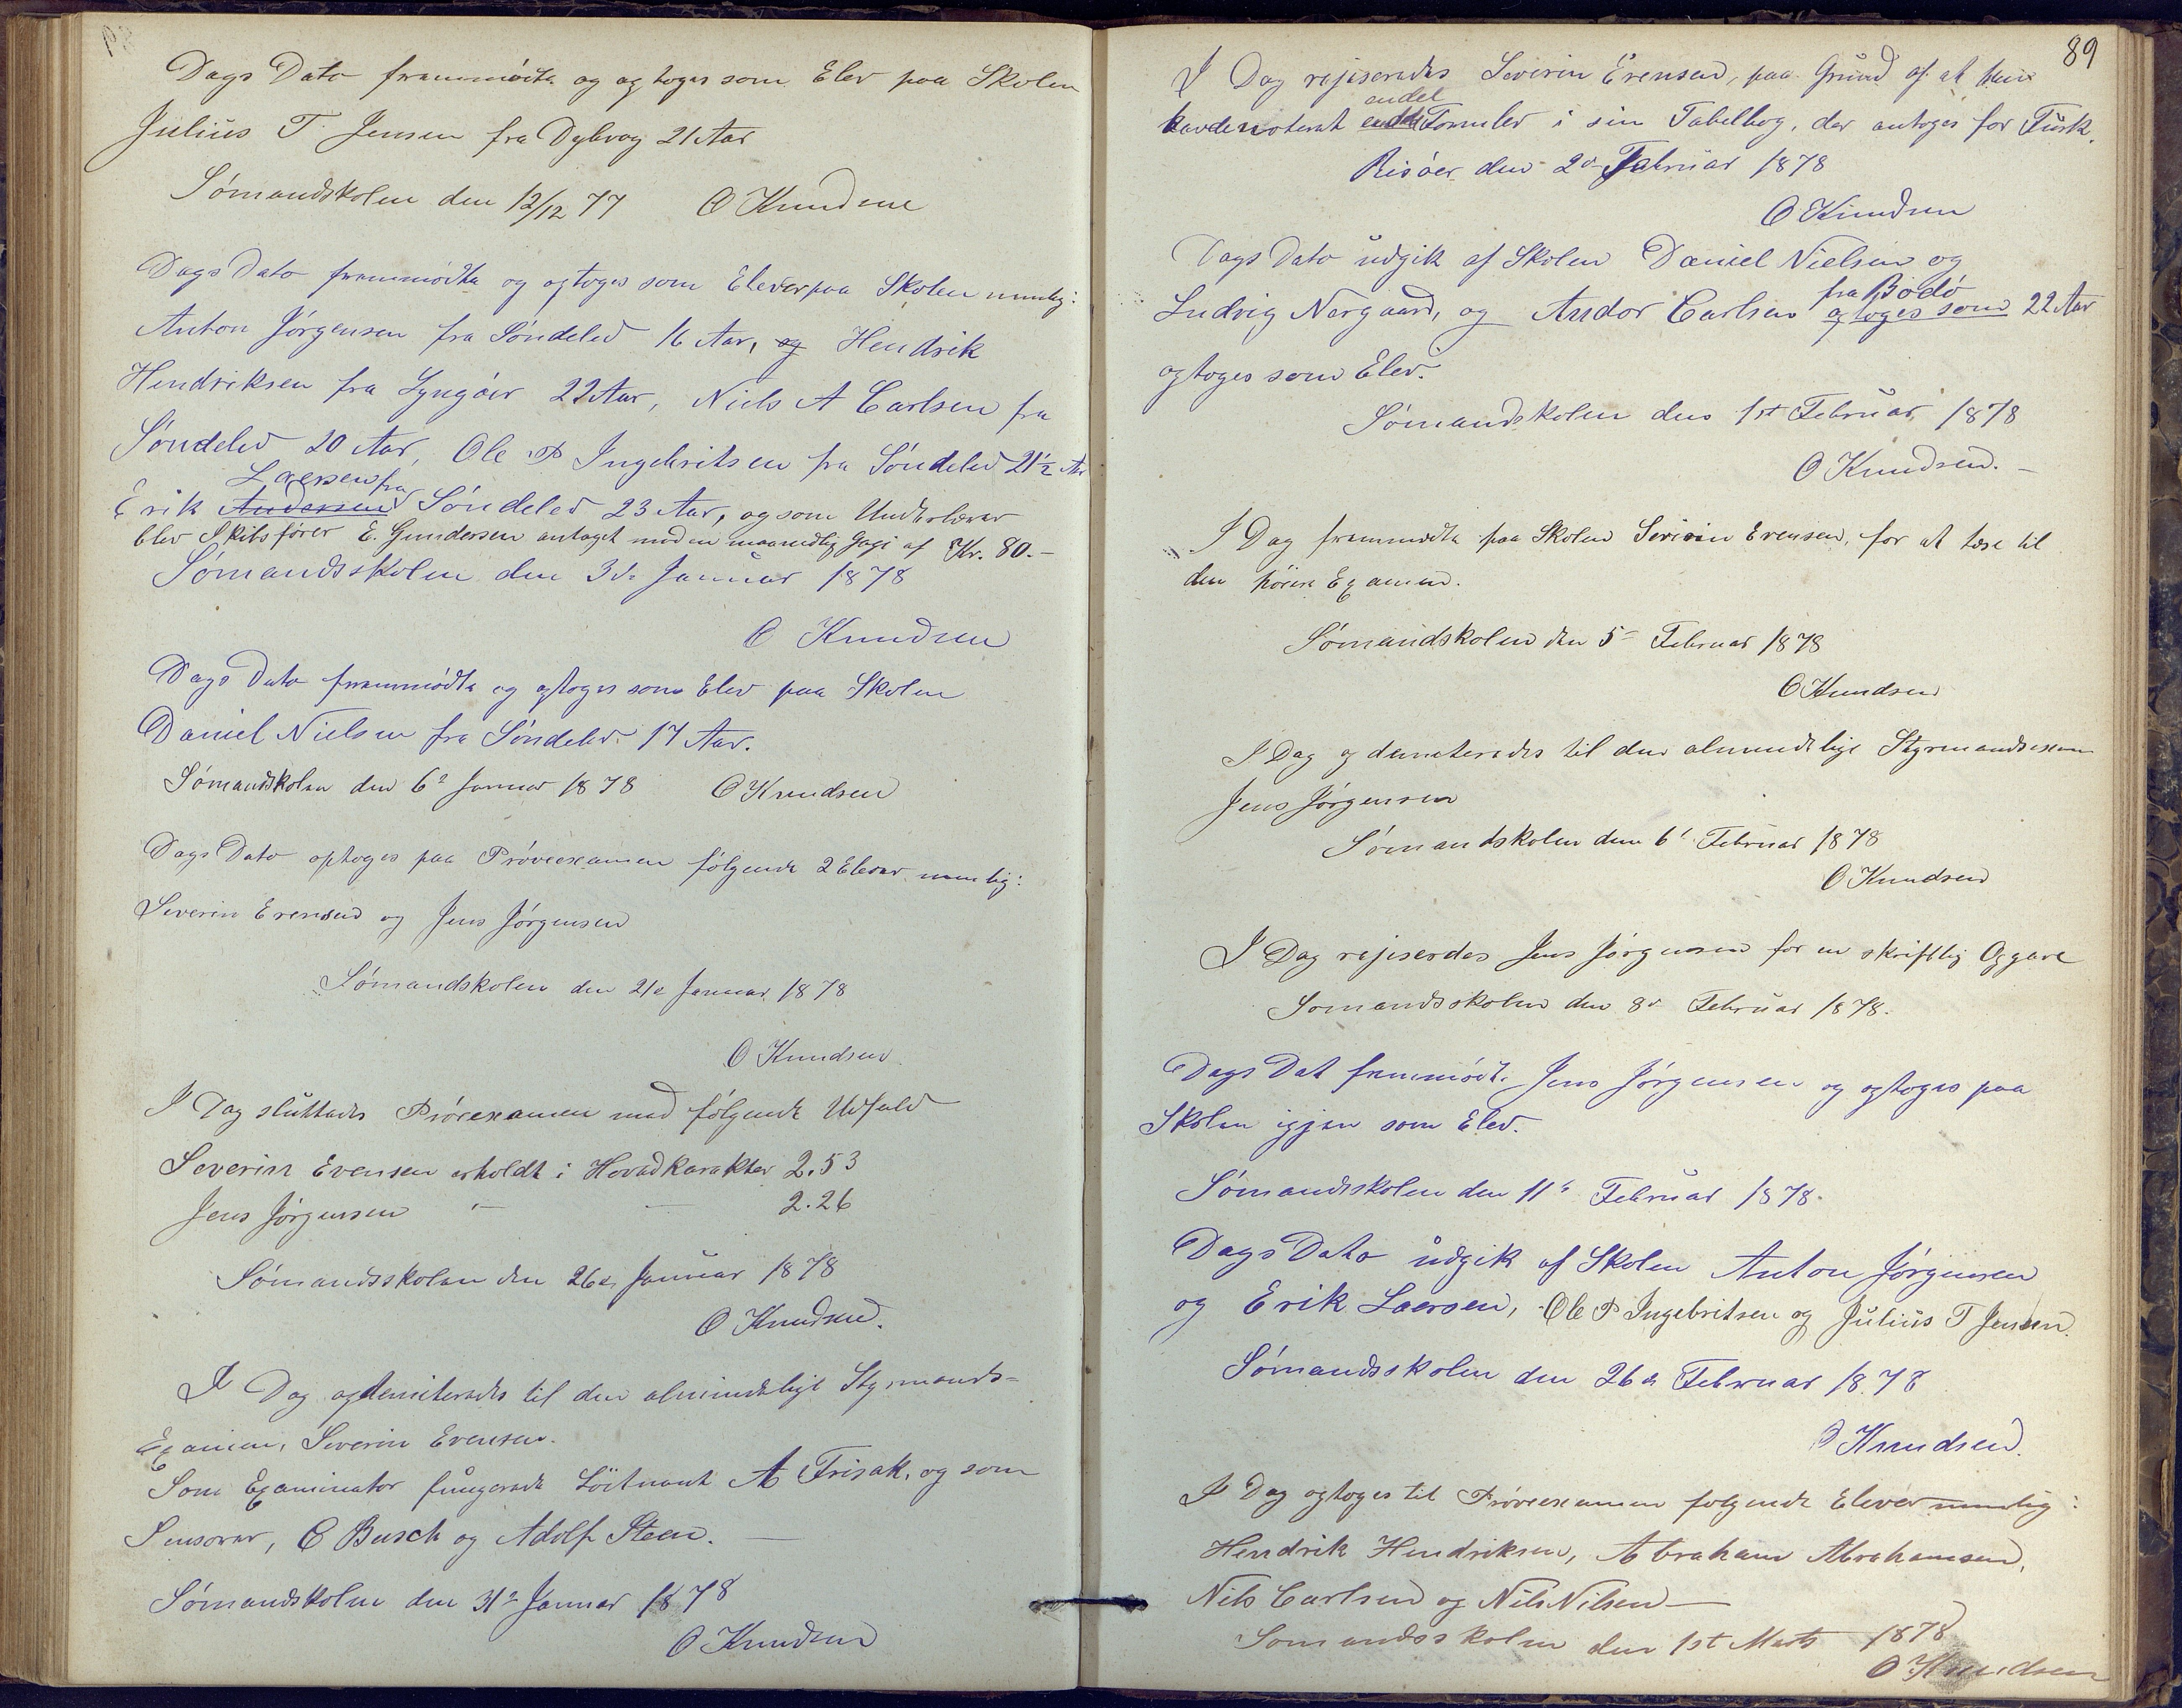 Dags Dato fremmödte og optoges som Elev paa Skolen
Julius T. Jensen fra Dybvog 21 Aar
Sömandskolen den 12/12 77 O Knudsen
Dags Dato fremmödte og optoges som Elever paa Skolen nemlig:
Anton Jörgensen fra Söndeled 16 Aar, og Hendrik
Hendriksen fra Lyngöer 22 Aar, Niels A Carlsen fra
Söndeled 20 Aar, Ole P Ingebritsen fra Söndeled 21½ Aar
Laersen fra
Erik Andersen Söndeled 23 Aar, og som Underlærer
blev Skibsförer E. Gundersen antaget med en maanedlig Gage af Kr. 80.-
Sömandsskolen den 3de Januar 1878
O Knudsen
Dags Dato fremmödte og optoges som Elev paa Skolen
Daniel Nielsen fra Söndeled 17 Aar.
Sömandskolen den 6e Januar 1878 O Knudsen
Dags Dato optoges paa Pröveexamen fölgende 2 Elever nemlig:
Severin Evensen og Jens Jörgensen
Sömandskolen den 21e Januar 1878
O Knudsen
I Dag sluttedes Pröveexamen med fölgende Udfald
Severin Evensen erholdt i Hovedkarakter 2.53
Jens Jörgensen — — 2.26
Sömandsskolen den 26de Januar 1878
O Knudsen.
I Dag opdemiteredes til den almindelige Styrmands=
Examen, Severin Evensen.
Som Examinator fungerede Löitnant A Frisak, og som
Sensorer, C Busch og Adolf Steen. —
Sömandskolen den 31e Januar 1878
O Knudsen
89
I Dag rejiseredes Severin Evensen, paa Grund af at han
endel
havde noteret endel Formler i sin Tabelbog, der antoges for Fusk.
Risöer den 2de Februar 1878
O Knudsen
Dags Dato udgik af Skolen Daniel Nielsen og
fra Bodö
Ludvig Nergaard, og Andor Carlsen optoges som 22 Aar
optoges som Elev.
Sömandskolen den 1st Februar 1878
O Knudsen. —
I Dag fremmødte paa Skolen Severin Evensen, for at læse til
den höiere Examen.
Sömandskolen den 5= Februar 1878
O Knudsen
I Dag opdemiteredes til den almindelige Styrmandsexamen
Jens Jörgensen
Sömandskolen den 6' Februar 1878
O Knudsen
I Dag rejiserdes Jens Jörgensen for en skriftlig Opgave
Somandsskolen den 8de Februar 1878.
Dags Dat fremmödte Jens Jörgensen og optoges paa
Skolen igjen som Elev.
Sömandsskolen den 11te Februar 1878.
Dags Dato udgik af Skolen Anton Jörgensen
og Erik Laersen, Ole P Ingebritsen og Julius T Jensen.
Sömandsskolen den 26de Februar 1878
O Knudsen.
I Dag optoges til Pröveexamen folgende Elever nemlig:
Hendrik Hendriksen, Abraham Abrahamsen,
Nils Carlsen og Nils Nilsen —
Somandsskolen den 1st Marts 1878
O Knudsen